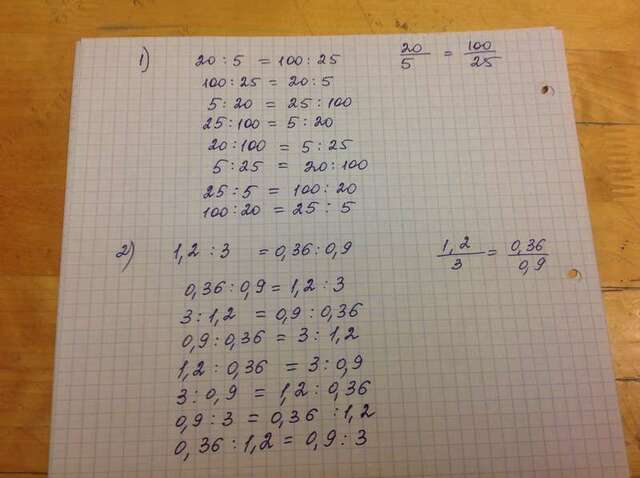 1) 20 : 5 = 100 : 25   20/5 = 100/25
100 : 25 = 20 : 5
5 : 20 = 25 : 100
25 : 100 = 5 : 20
20 : 100 = 5 : 25
5 : 25 = 20 : 100
25 : 5 = 100 : 20
100 : 20 = 25 : 5
2) 1,2 : 3 = 0,36 : 0,9   1,2/3 = 0,36/0,9
0,36 : 0,9 = 1,2 : 3
3 : 1,2 = 0,9 : 0,36
0,9 : 0,36 = 3 : 1,2
1,2 : 0,36 = 3 : 0,9
3 : 0,9 = 1,2 : 0,36
0,9 : 3 = 0,36 : 1,2
0,36 : 1,2 = 0,9 : 3